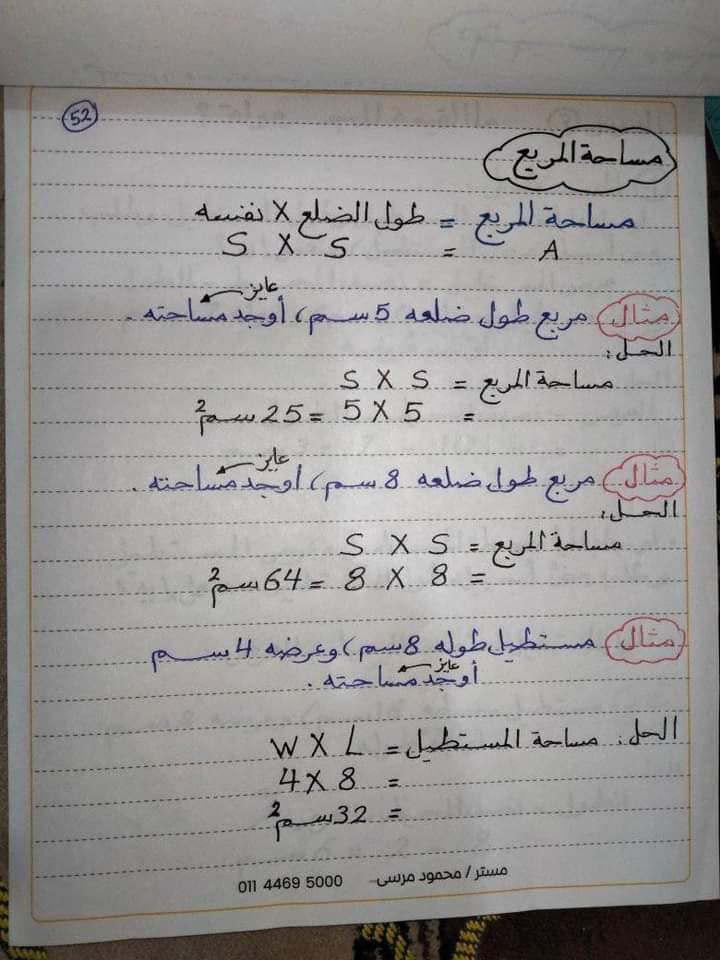 52
مساحة المربع
مساحة المربع = طول الضلع X نفسه
A = S X S
عايز
مثال مربع طول ضلعه 5 سم، أوجد مساحته .
الحل:
مساحة المربع = S X S
= 5 X 5 = 25 سم2
عايز
مثال مربع طول ضلعه 8 سم، أوجد مساحته .
الحل:
مساحة المربع = S X S
= 8 X 8 = 64 سم2
مثال مستطيل طوله 8 سم، وعرضه 4 سم
عايز
أوجد مساحته .
الحل: مساحة المستطيل = L X W
= 8 X 4
= 32 سم2
مستر / محمود مرسى 011 4469 5000